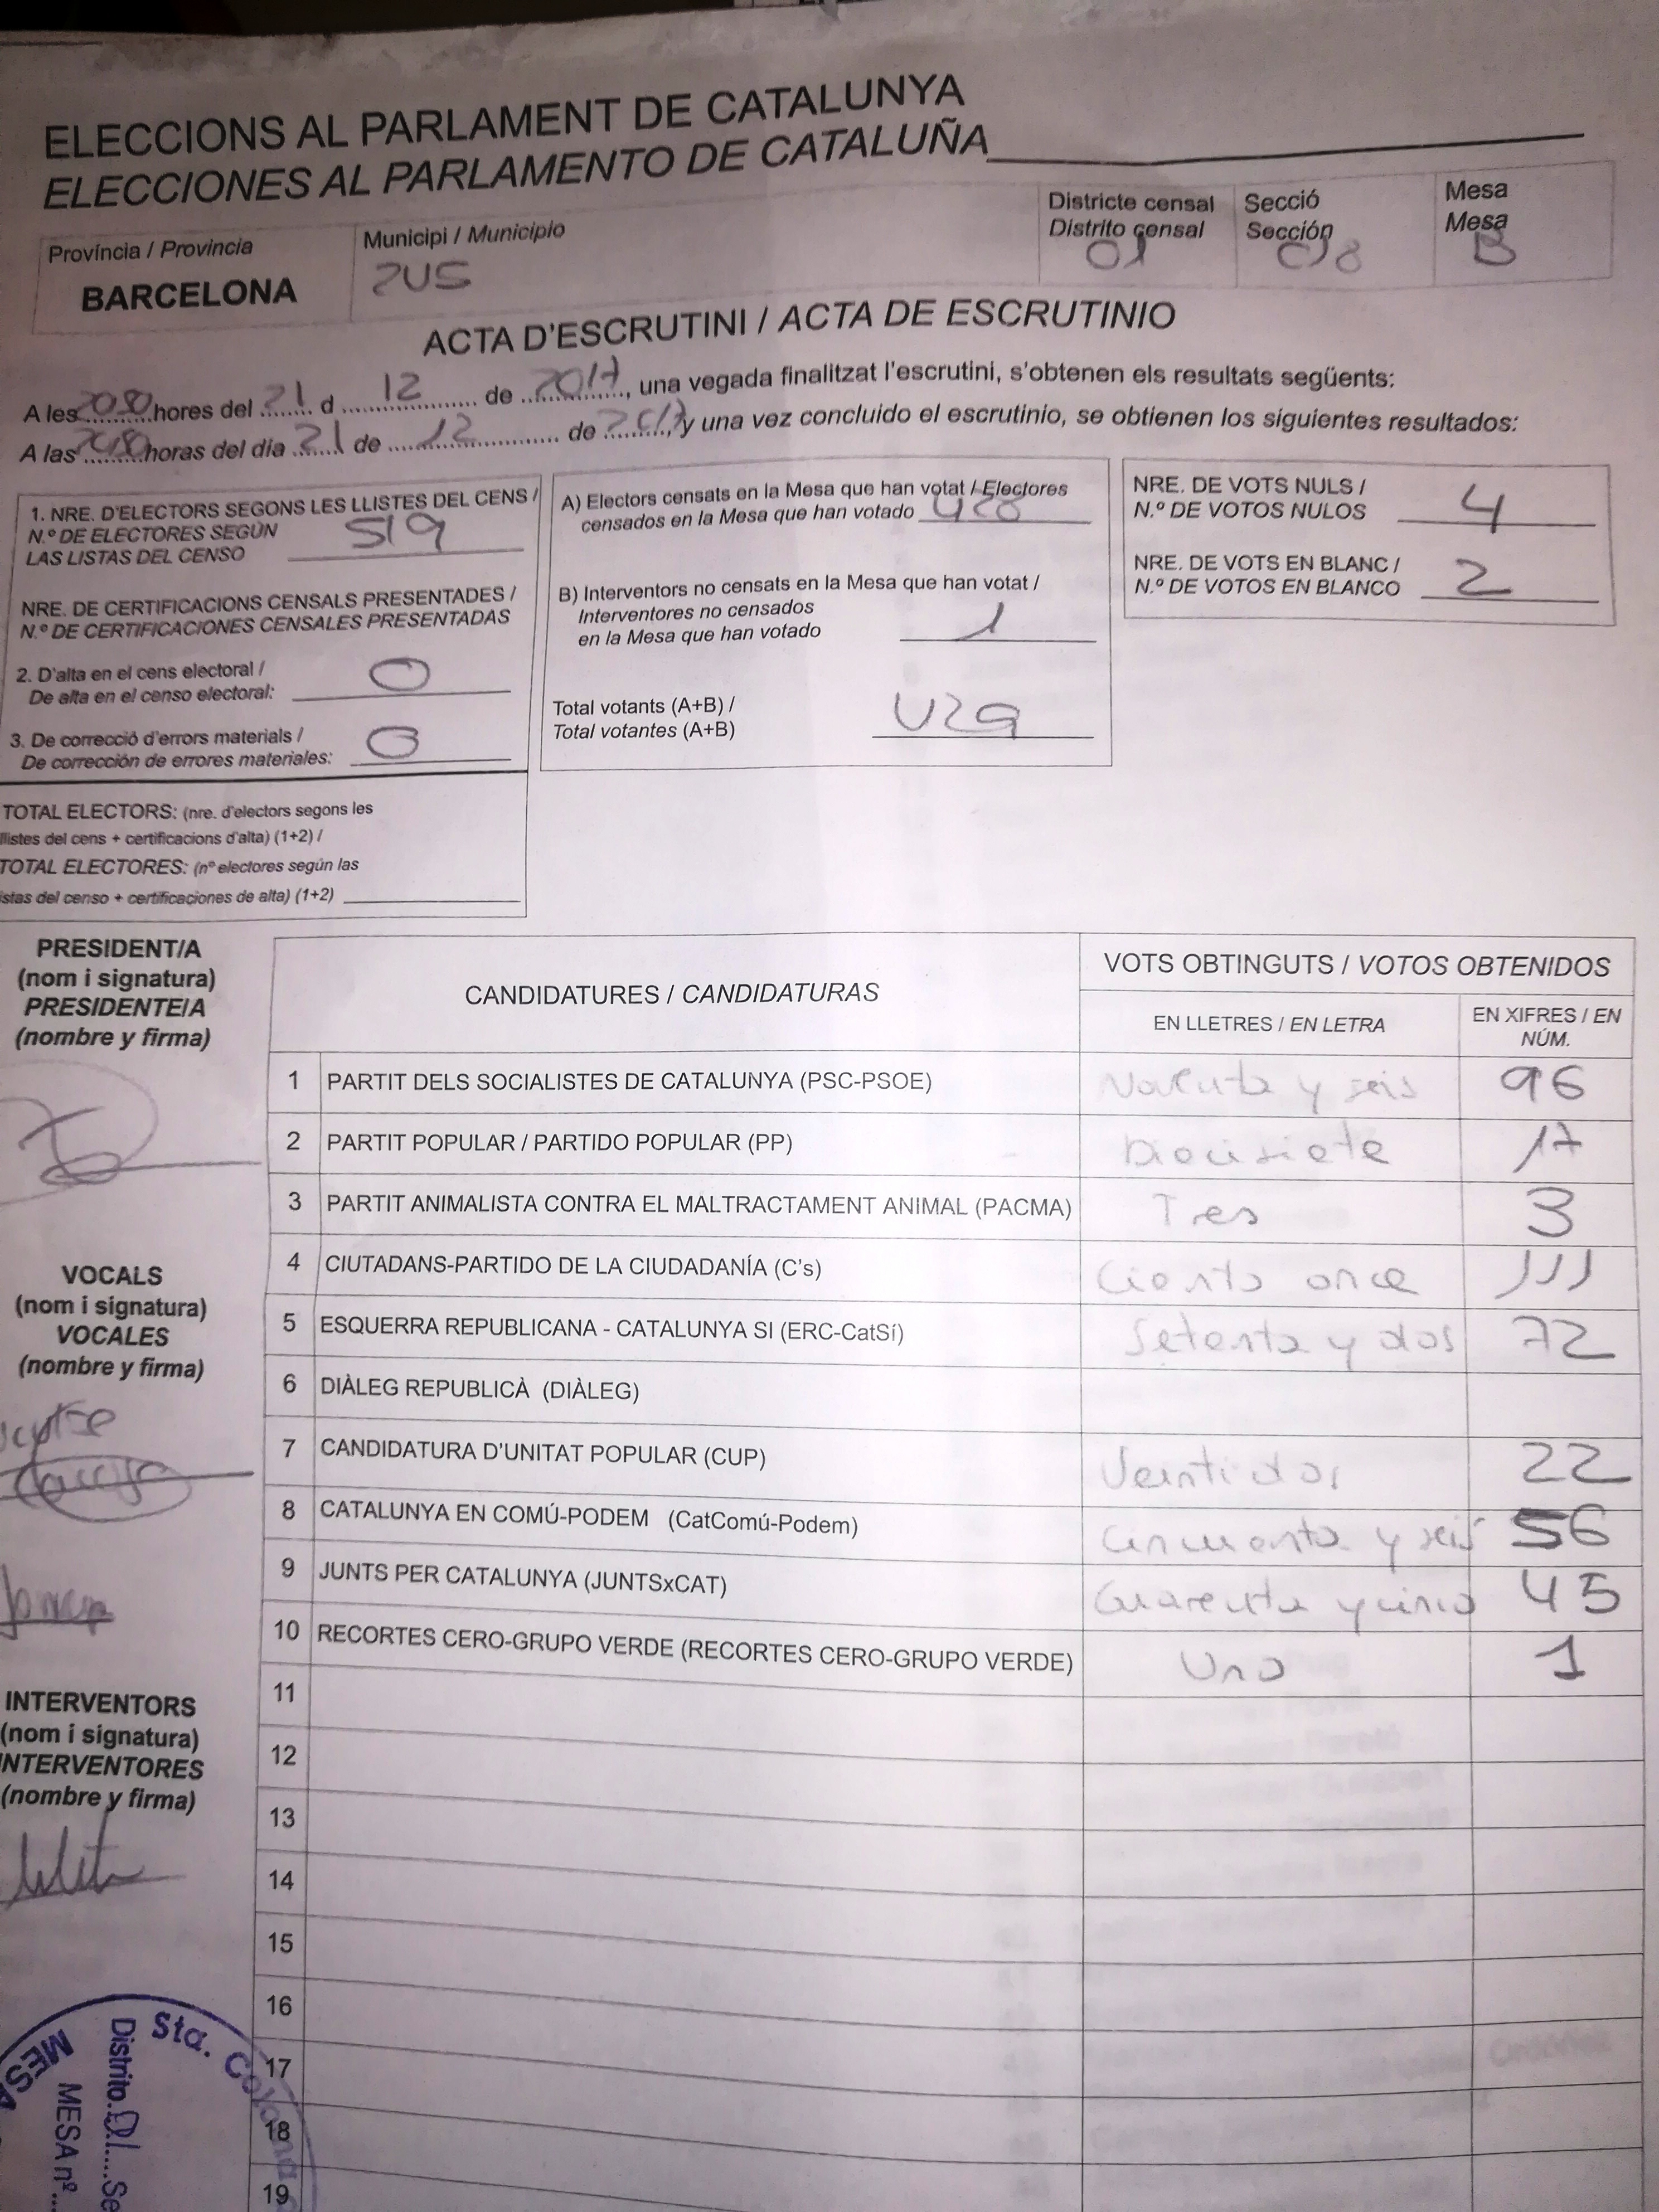 ELECCIONS AL PARLAMENT DE CATALUNYA
ELECCIONES AL PARLAMENTO DE CATALUÑA
Província / Provincia
BARCELONA
Municipi / Municipio
Districte censal
Distrito censal
01
Secció
Sección
018
Mesa
Mesa
B
ACTA D'ESCRUTINI / ACTA DE ESCRUTINIO
A les hores del 21 d 12 de 2017, una vegada finalitzat l'escrutini, s'obtenen els resultats següents:
A las horas del día 21 de 12 de 2017, y una vez concluido el escrutinio, se obtienen los siguientes resultados:
1. NRE. D'ELECTORS SEGONS LES LLISTES DEL CENS /
N.º DE ELECTORES SEGÚN
LAS LISTAS DEL CENSO 519
NRE. DE CERTIFICACIONS CENSALS PRESENTADES /
N.º DE CERTIFICACIONES CENSALES PRESENTADAS
2. D'alta en el cens electoral /
De alta en el censo electoral: 0
3. De correcció d'errors materials /
De corrección de errores materiales: 0
TOTAL ELECTORS: (nre. d'electors segons les
llistes del cens + certificacions d'alta) (1+2) /
TOTAL ELECTORES: (nº electores según las
istas del censo + certificaciones de alta) (1+2)
A) Electors censats en la Mesa que han votat / Electores
censados en la Mesa que han votado 428
B) Interventors no censats en la Mesa que han votat /
Interventores no censados
en la Mesa que han votado 1
Total votants (A+B) /
Total votantes (A+B) 429
NRE. DE VOTS NULS /
N.º DE VOTOS NULOS 4
NRE. DE VOTS EN BLANC /
N.º DE VOTOS EN BLANCO 2
PRESIDENT/A
(nom i signatura)
PRESIDENTE/A
(nombre y firma)
VOCALS
(nom i signatura)
VOCALES
(nombre y firma)
INTERVENTORS
(nom i signatura)
INTERVENTORES
(nombre y firma)
CANDIDATURES / CANDIDATURAS
VOTS OBTINGUTS / VOTOS OBTENIDOS
EN LLETRES / EN LETRA
EN XIFRES / EN
NÚM.
1 PARTIT DELS SOCIALISTES DE CATALUNYA (PSC-PSOE) Noventa y seis 96
2 PARTIT POPULAR / PARTIDO POPULAR (PP) Diecisiete 17
3 PARTIT ANIMALISTA CONTRA EL MALTRACTAMENT ANIMAL (PACMA) Tres 3
4 CIUTADANS-PARTIDO DE LA CIUDADANÍA (C's) Ciento once 111
5 ESQUERRA REPUBLICANA - CATALUNYA SI (ERC-CatSí) Setenta y dos 72
6 DIÀLEG REPUBLICÀ (DIÀLEG)
7 CANDIDATURA D'UNITAT POPULAR (CUP) Veintidos 22
8 CATALUNYA EN COMÚ-PODEM (CatComú-Podem) Cincuenta y seis 56
9 JUNTS PER CATALUNYA (JUNTSxCAT) Cuarenta y cinco 45
10 RECORTES CERO-GRUPO VERDE (RECORTES CERO-GRUPO VERDE) Uno 1
11
12
13
14
15
16
17
18
19
Sta. Coloma
Distrito 01 Se
MESA nº
MESA